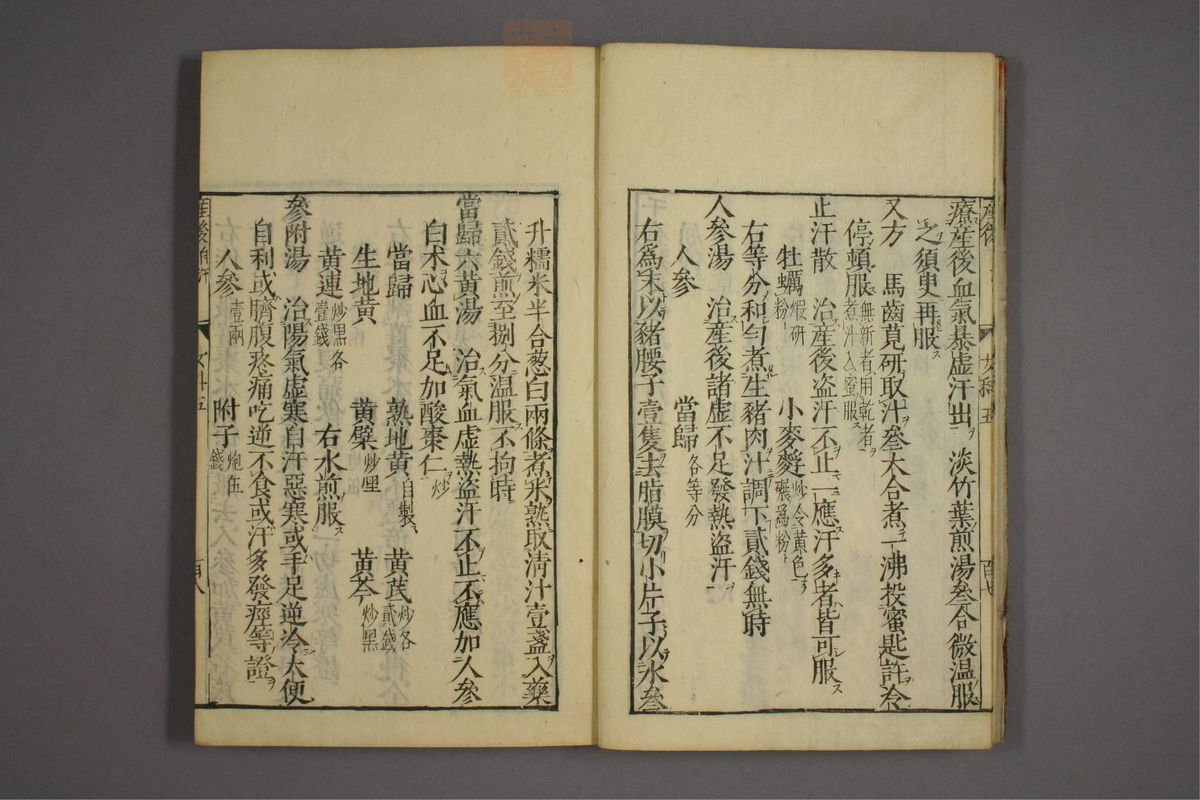 療產後血氣暴虛汗出 淡竹葉煎湯叁合微溫服
之須臾再服
又方 馬齒莧研取汁叁大合煮一沸投蜜匙許冷
停頓服 無新者用乾者煮汁入蜜服
止汗散 治產後盜汗不止一應汗多者皆可服
牡蠣 煆研粉 小麥麩 炒令黃色碾爲粉
右等分和勻煮生豬肉汁調下貳錢無時
人參湯 治產後諸虛不足發熱盜汗
人參 當歸 各等分
右爲末以豬腰子壹隻去脂膜切小片子以水叁
升糯米半合葱白兩條煮米熟取淸汁壹盞入藥
貳錢煎至捌分溫服不拘時
當歸六黃湯 治氣血虛熱盜汗不止不應加人參
白朮心血不足加酸棗仁 炒
當歸 熟地黃 自製 黃芪 炒各貳錢
生地黃 黃檗 炒黑 黃芩 炒黑
黃連 炒黑各壹錢 右水煎服
參附湯 治陽氣虛寒自汗惡寒或手足逆冷大便
自利或臍腹疼痛吃逆不食或汗多發痙等證
人參 壹兩 附子 炮伍錢
產後自汗 女科五 百八